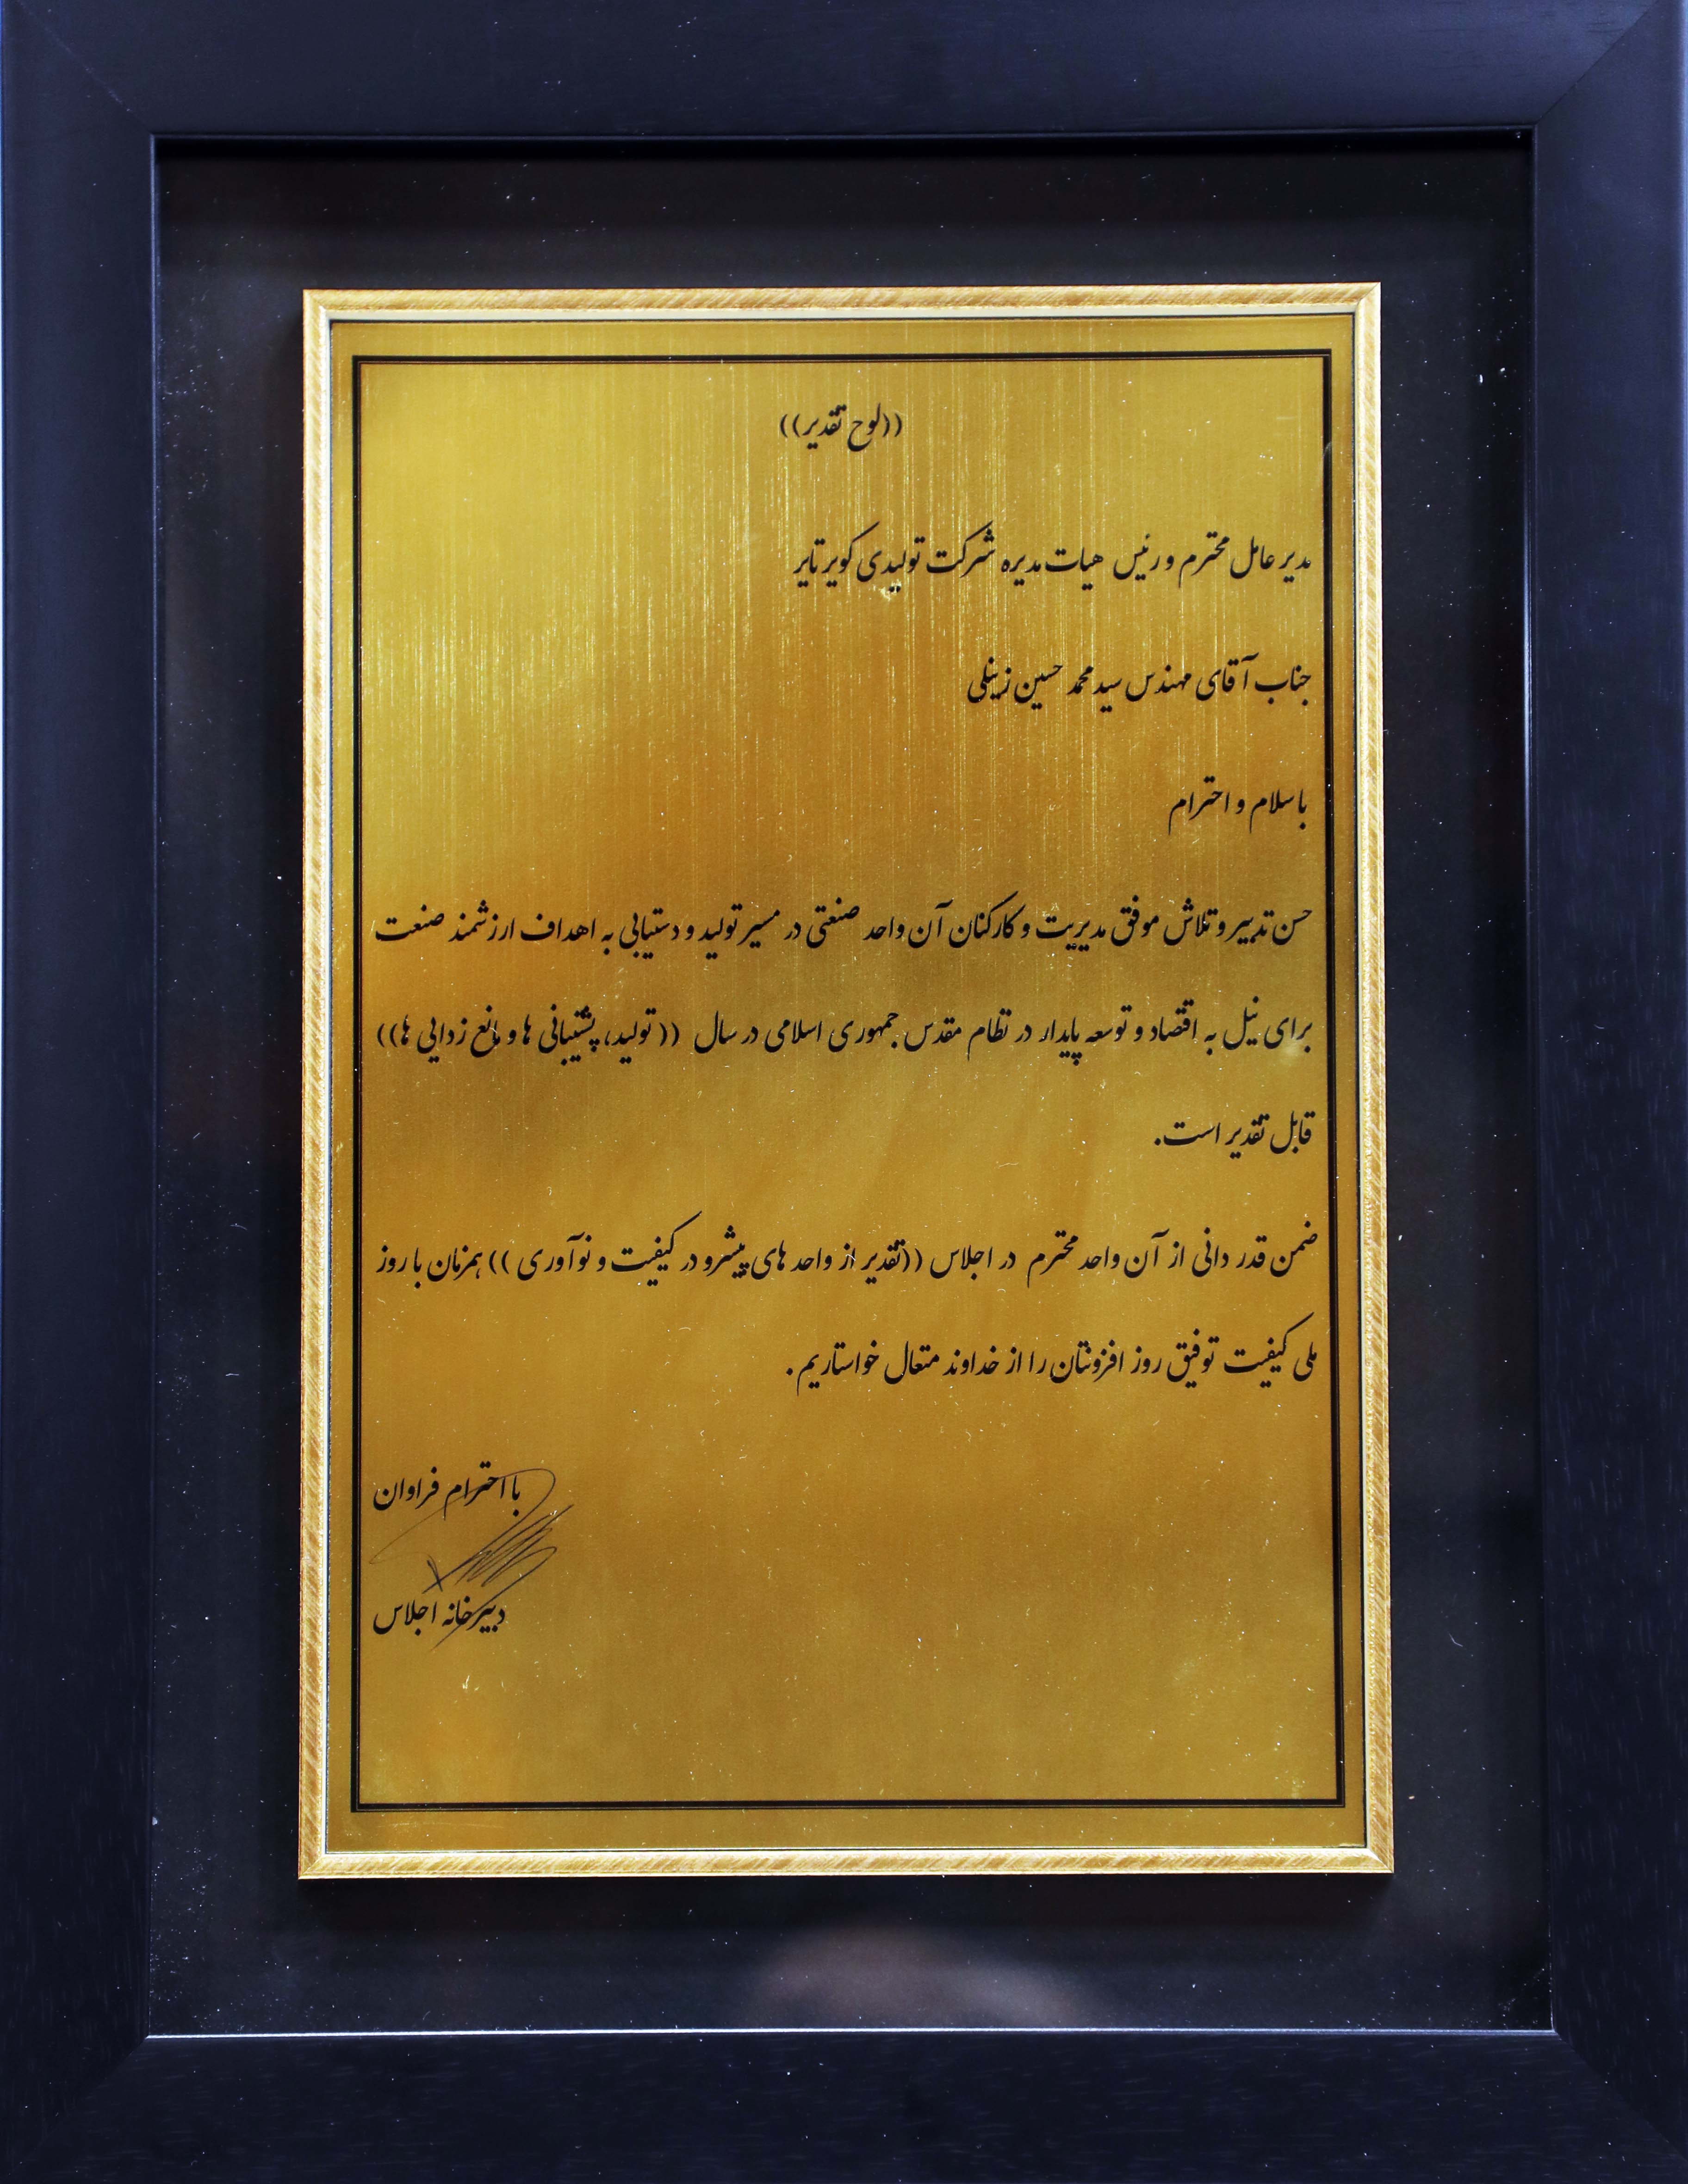 ((لوح تقدیر))
مدیر عامل محترم و رئیس هیات مدیره شرکت تولیدی کویر تایر
جناب آقای مهندس سید محمد حسین زینلی
با سلام و احترام
حسن تدبیر و تلاش موفق مدیریت و کارکنان آن واحد صنعتی در مسیر تولید و دستیابی به اهداف ارزشمند صنعت
برای نیل به اقتصاد و توسعه پایدار در نظام مقدس جمهوری اسلامی در سال ((تولید، پشتیبانی ها و مانع زدایی ها))
قابل تقدیر است.
ضمن قدر دانی از آن واحد محترم در اجلاس ((تقدیر از واحد های پیشرو در کیفیت و نوآوری)) همزمان با روز
ملی کیفیت توفیق روز افزونتان را از خداوند متعال خواستاریم.
با احترام فراوان
دبیرخانه اجلاس